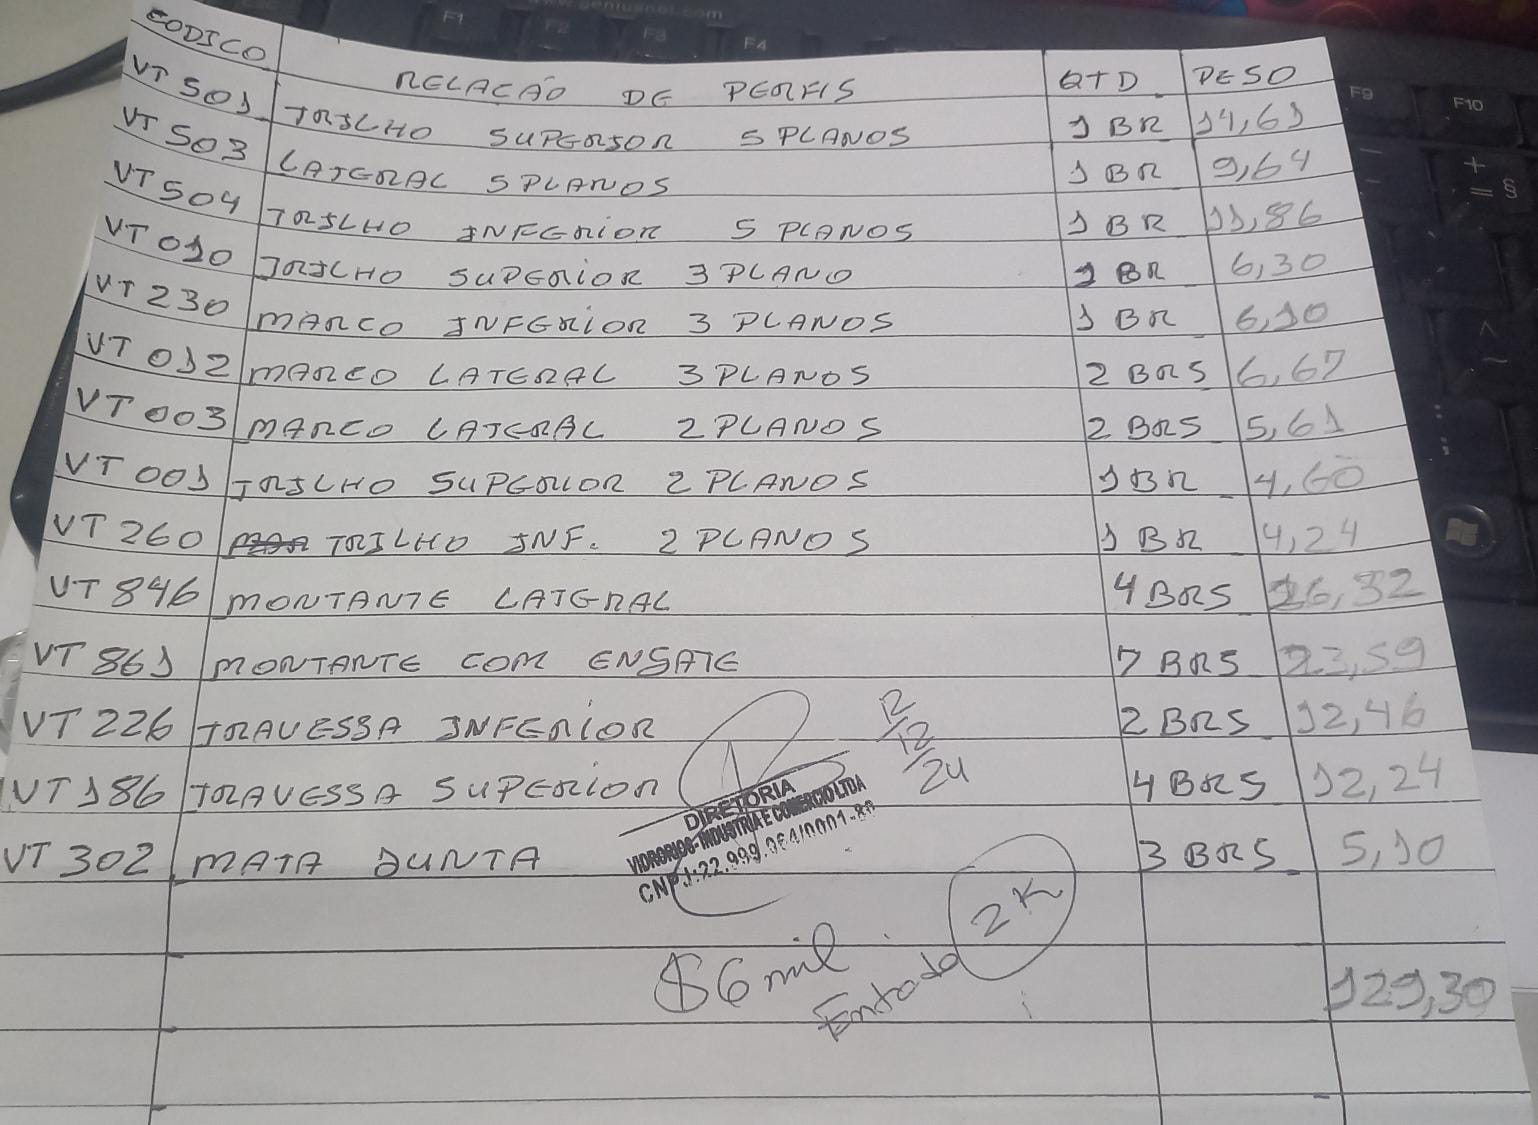 CODICO RELAÇÃO DE PERFIS QTD PESO
VT 501 TRILHO SUPERIOR 5 PLANOS 1 BR 14,61
VT 503 LATERAL 5 PLANOS 1 BR 9,64
VT 504 TRILHO INFERIOR 5 PLANOS 1 BR 11,86
VT 010 TRILHO SUPERIOR 3 PLANO 1 BR 6,30
VT 230 MARCO INFERIOR 3 PLANOS 1 BR 6,10
VT 012 MARCO LATERAL 3 PLANOS 2 BRS 6,67
VT 003 MARCO LATERAL 2 PLANOS 2 BRS 5,61
VT 001 TRILHO SUPERIOR 2 PLANOS 1 BR 4,60
VT 260 TRILHO INF. 2 PLANOS 1 BR 4,24
VT 846 MONTANTE LATERAL 4 BRS 16,32
VT 861 MONTANTE COM ENGATE 7 BRS 23,59
VT 226 TRAVESSA INFERIOR 2 BRS 12,46
VT 186 TRAVESSA SUPERIOR 4 BRS 12,24
VT 302 MATA JUNTA 3 BRS 5,10
12/12/24
DIRETORIA
VIDRORIOS-INDUSTRIA E COMERCIO LTDA
CNPJ:22.999.064/0001-80
$6 mil
Entrada 2K
129,30
F1
F2
F3
F4
F9
F10